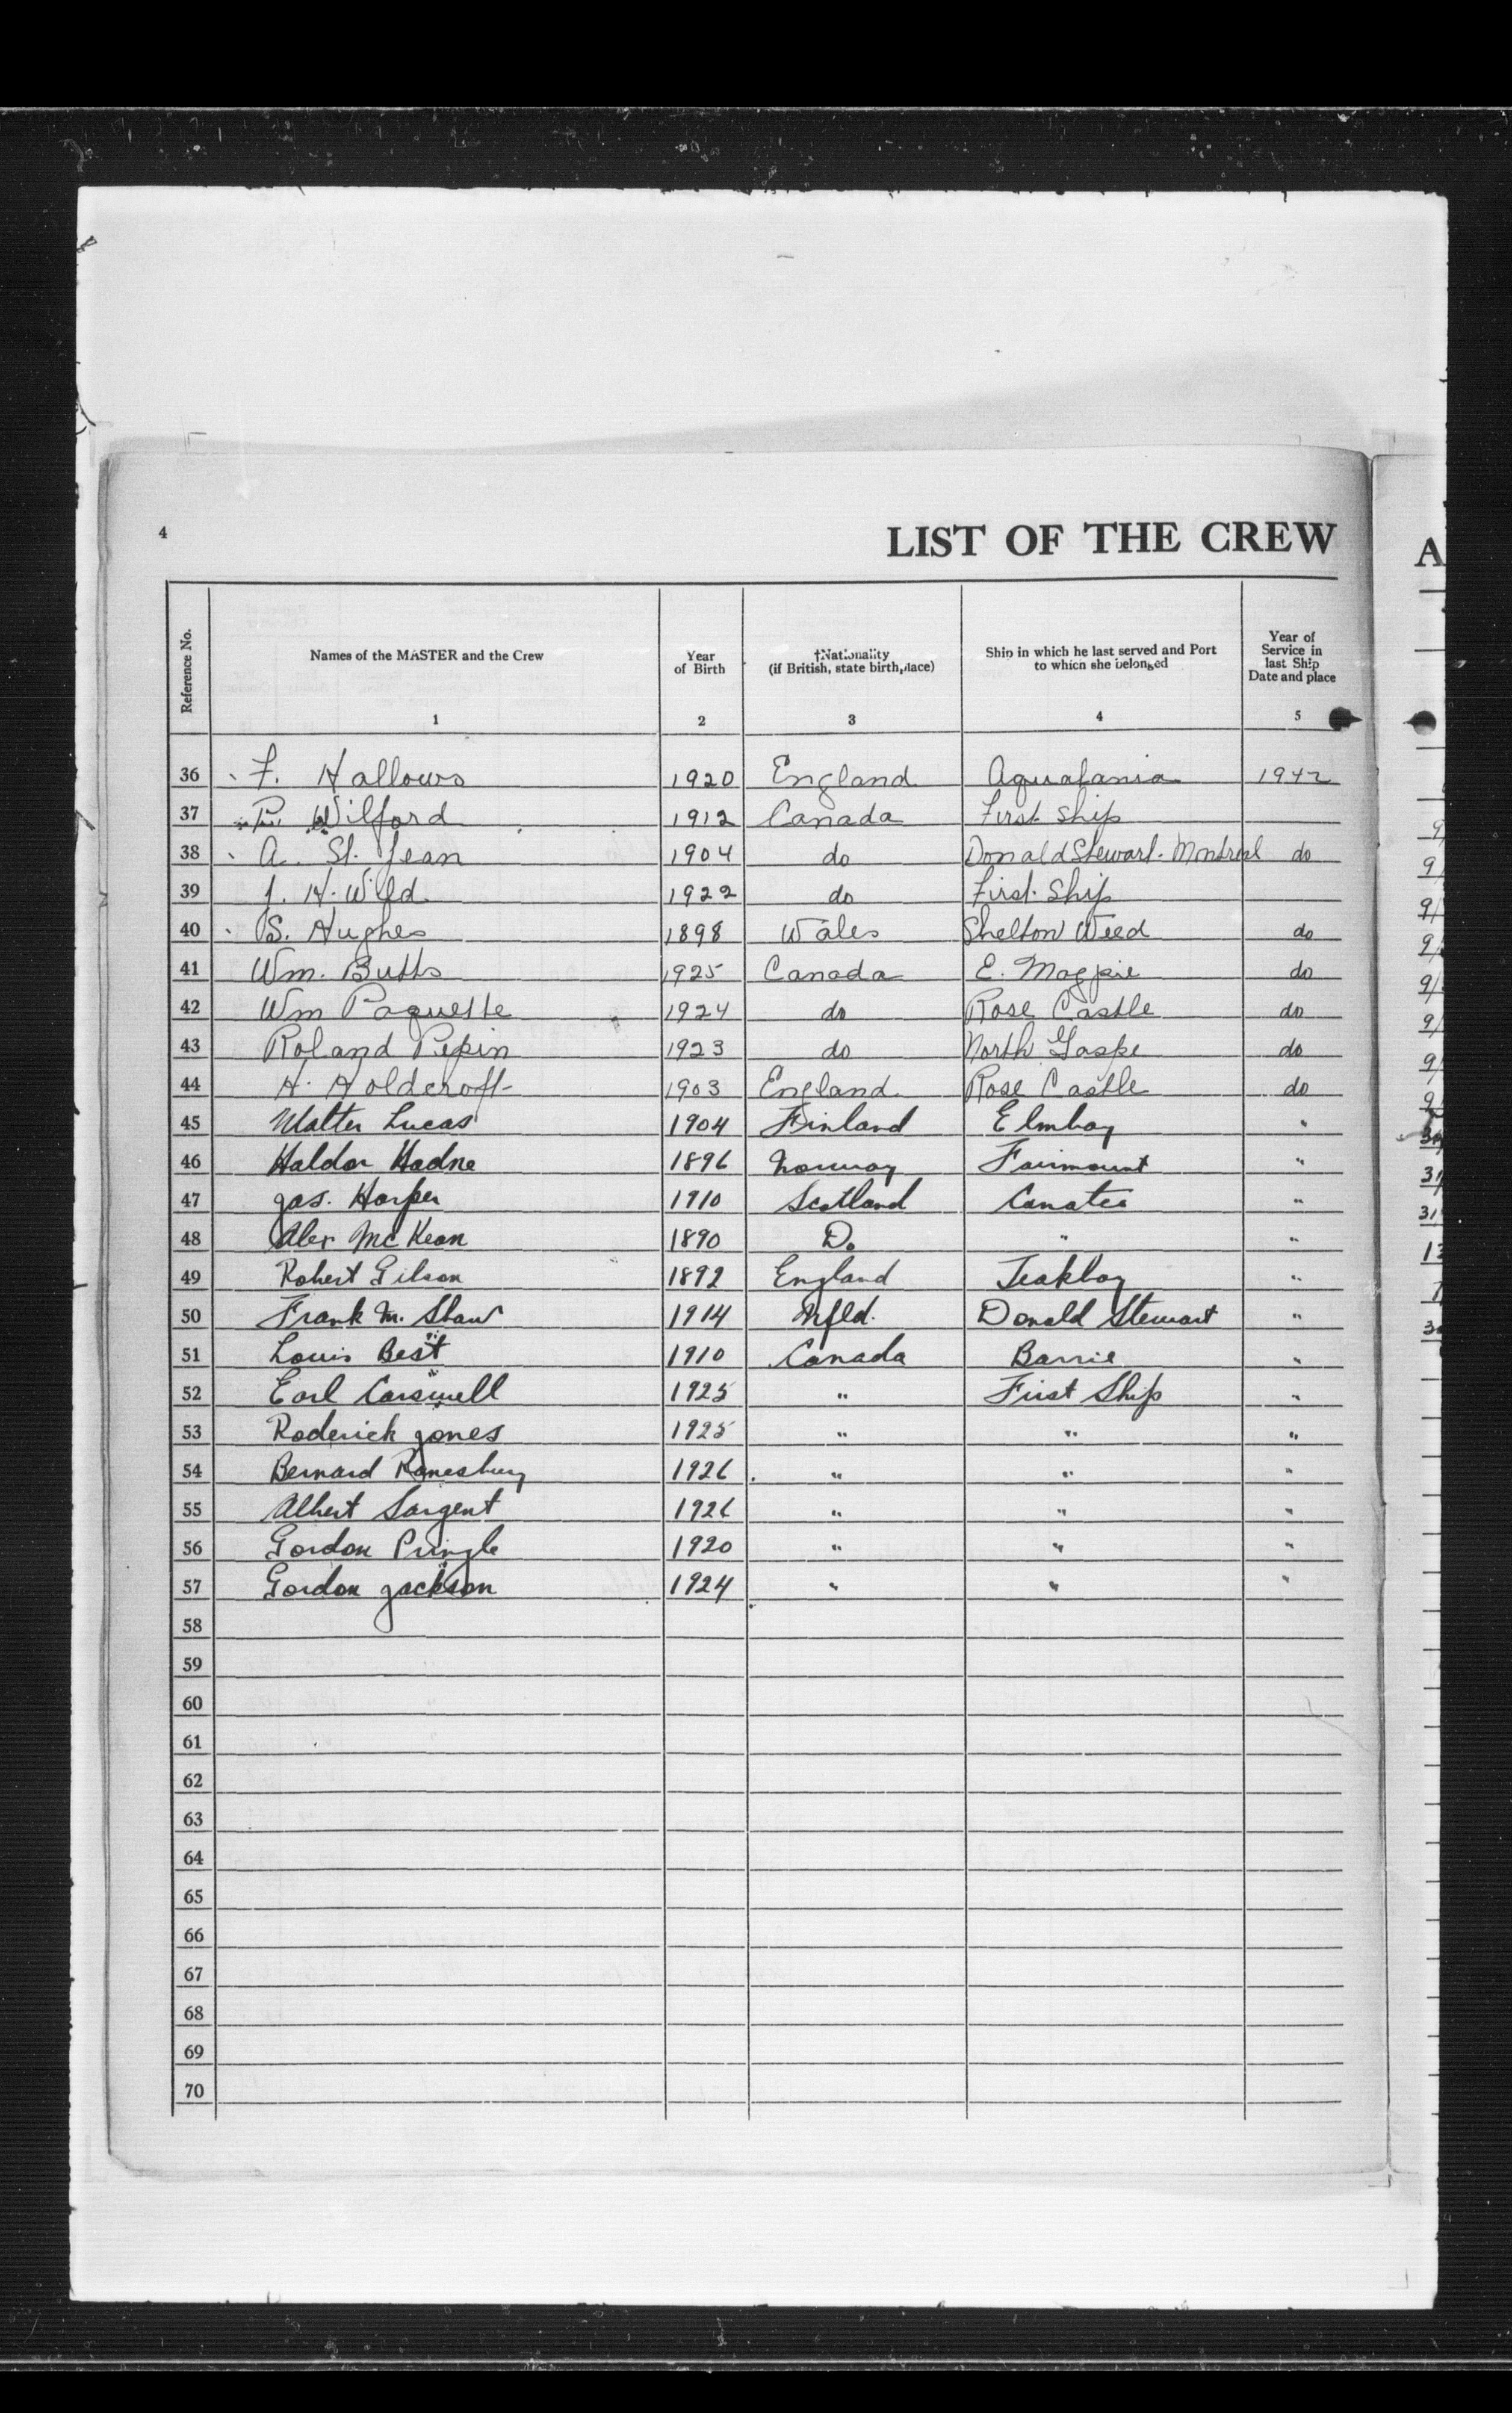 4
LIST OF THE CREW
A
Reference No.
Names of the MASTER and the Crew
1
Year of Birth
2
†Nationality (if British, state birthplace)
3
Ship in which he last served and Port to which she belonged
4
Year of Service in last Ship Date and place
5
36 F. Hallows 1920 England Aquatania 1942
37 Wilford 1912 Canada First Ship
38 A. St. Jean 1904 do Donald Stewart. Montreal do
39 J. H. Wild 1922 do First Ship
40 S. Hughes 1898 Wales Shelton Weed do
41 Wm. Butts 1925 Canada E. Magpie do
42 Wm Paquette 1924 do Rose Castle do
43 Roland Pepin 1923 do North Gaspe do
44 H. Holdcroft 1903 England Rose Castle do
45 Walter Lucas 1904 Finland Elmbay "
46 Haldor Hadne 1896 Norway Fairmount "
47 Jas. Harper 1910 Scotland Canatco "
48 Alex McKean 1890 Do " "
49 Robert Gilson 1892 England Teakbay "
50 Frank M. Shaw 1914 Nfld. Donald Stewart "
51 Louis Best 1910 Canada Barrie "
52 Earl Carswell 1925 " First Ship "
53 Roderick Jones 1925 " " "
54 Bernard 1926 " " "
55 Albert Sargent 1926 " " "
56 Gordon Pringle 1920 " " "
57 Gordon Jackson 1924 " " "
58
59
60
61
62
63
64
65
66
67
68
69
70